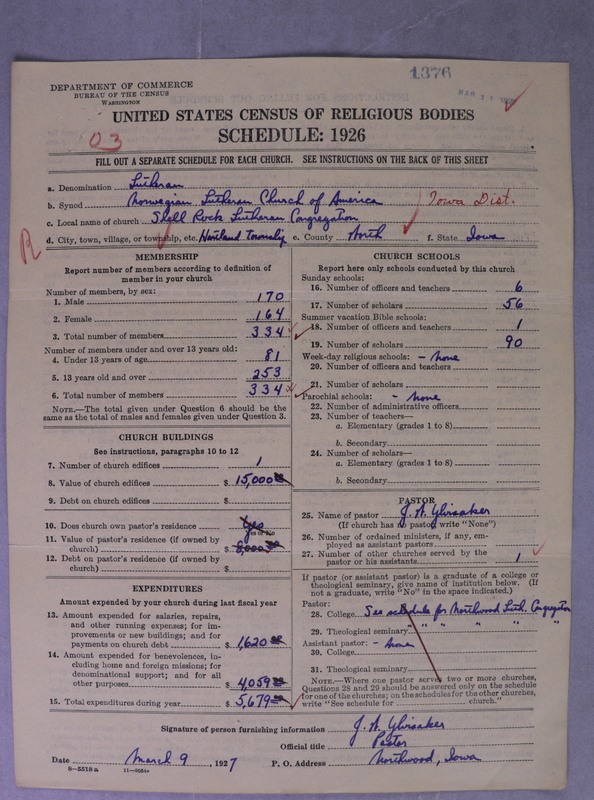 1376
DEPARTMENT OF COMMERCE
BUREAU OF THE CENSUS
WASHINGTON
UNITED STATES CENSUS OF RELIGIOUS BODIES
SCHEDULE: 1926
03
FILL OUT A SEPARATE SCHEDULE FOR EACH CHURCH. SEE INSTRUCTIONS ON THE BACK OF THIS SHEET
a. Denomination Lutheran
b. Synod Norwegian Lutheran Church of America Iowa Dist.
c. Local name of church Shell Rock Lutheran Congregation
d. City, town, village, or township, etc. Hartland township e. County Worth f. State Iowa
R
MEMBERSHIP
Report number of members according to definition of member in your church
Number of members, by sex:
1. Male 170
2. Female 164
3. Total number of members 334
Number of members under and over 13 years old:
4. Under 13 years of age 81
5. 13 years old and over 253
6. Total number of members 334
NOTE.—The total given under Question 6 should be
same as the total of males and females given under Question 3.
CHURCH BUILDINGS
See instructions, paragraphs 10 to 12
7. Number of church edifices 1
8. Value of church edifices $ 15,000
9. Debt on church edifices $
10. Does church own pastor's residence Yes
11. Value of pastor's residence (if owned by
church) $ 8,000
12. Debt on pastor's residence (if owned by
church) $
EXPENDITURES
Amount expended by your church during last fiscal year
13. Amount expended for salaries, repairs,
and other running expenses; for im-
provements or new buildings; and for
payments on church debt $ 1,620
14. Amount expended for benevolences, in-
cluding home and foreign missions; for
denominational support; and for all
other purposes $ 4,059
15. Total expenditures during year $ 5,679
CHURCH SCHOOLS
Report here only schools conducted by this church
Sunday schools:
16. Number of officers and teachers 6
17. Number of scholars 56
Summer vacation Bible schools:
18. Number of officers and teachers 1
19. Number of scholars 90
Week-day religious schools: - none
20. Number of officers and teachers
21. Number of scholars
Parochial schools: - none
22. Number of administrative officers
23. Number of teachers—
a. Elementary (grades 1 to 8)
b. Secondary
24. Number of scholars—
a. Elementary (grades 1 to 8)
b. Secondary
PASTOR
25. Name of pastor J. A. Ylvisaker
(If church has no pastor, write "None")
26. Number of ordained ministers, if any, em-
ployed as assistant pastors
27. Number of other churches served by the
pastor or his assistants 1
If pastor (or assistant pastor) is a graduate of a college or
theological seminary, give name of institution below. (If
not a graduate, write "No" in the space indicated.)
Pastor:
28. College See schedule for Northwood Luth. Congregation
29. Theological seminary " " " " "
Assistant pastor: - none
30. College
31. Theological seminary
NOTE.—Where one pastor serves two or more churches,
Questions 28 and 29 should be answered only on the schedule
for one of the churches; on the schedules for the other churches,
write "See schedule for ________ church."
Signature of person furnishing information J. A. Ylvisaker
Official title Pastor
Date March 9, 1927 P. O. Address Northwood, Iowa
8—5518a